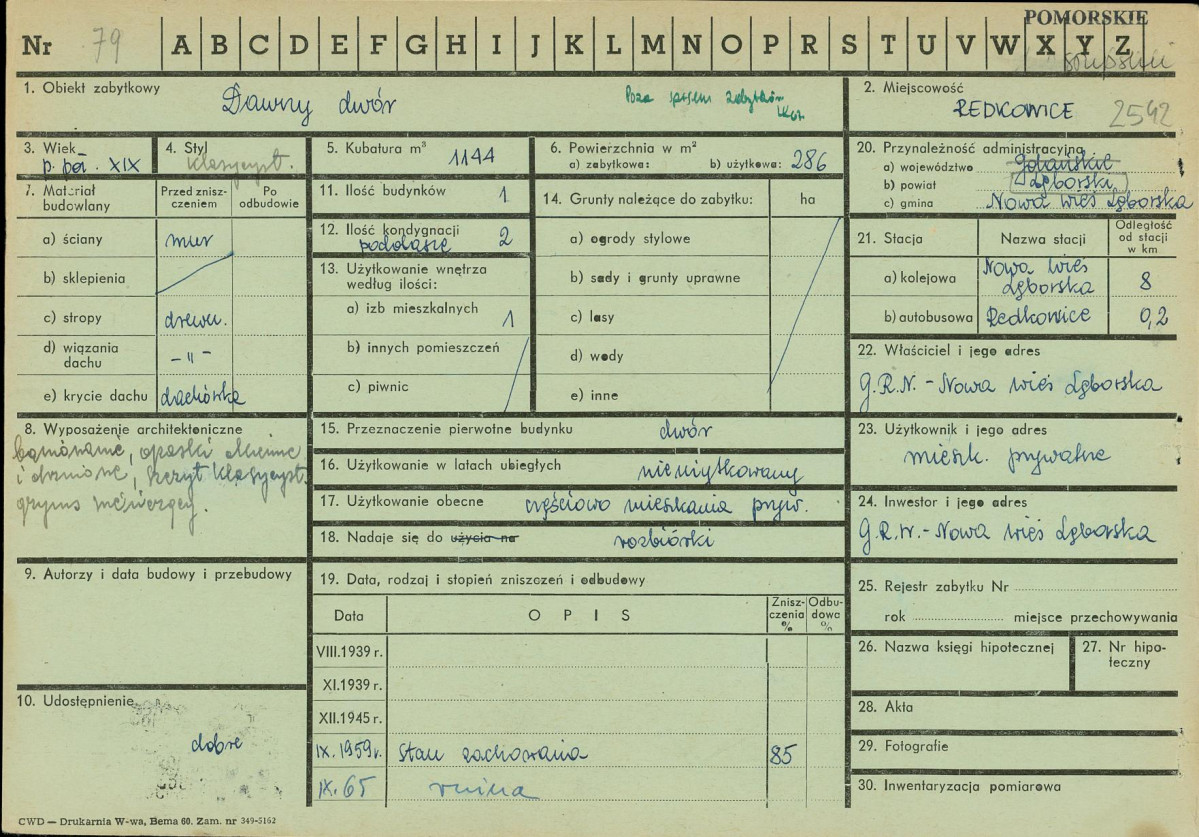 POMORSKIE
Nr 79 A B C D E F G H I J K L M N O P R S T U V W X Y Z
słupskii
1. Obiekt zabytkowy
Dawny dwór
Poza spisem zabytków
2. Miejscowość
REDKOWICE 2542
3. Wiek
p. poł. XIX
4. Styl
klasycyst.
5. Kubatura m³ 1144
6. Powierzchnia w m²
a) zabytkowa: b) użytkowa: 286
20. Przynależność administracyjna
a) województwo Gdańskie
b) powiat Lęborski
c) gmina Nowa Wieś Lęborska
7. Materiał budowlany
Przed zniszczeniem
Po odbudowie
a) ściany mur
b) sklepienia
c) stropy drewn.
d) wiązania dachu – „ –
e) krycie dachu dachówka
11. Ilość budynków 1
12. Ilość kondygnacji 2
poddasze
13. Użytkowanie wnętrza
według ilości:
a) izb mieszkalnych 1
b) innych pomieszczeń
c) piwnic
14. Grunty należące do zabytku: ha
a) ogrody stylowe
b) sady i grunty uprawne
c) lasy
d) wody
e) inne
21. Stacja
Nazwa stacji
Odległość od stacji w km
a) kolejowa Nowa Wieś Lęborska 8
b) autobusowa Redkowice 0,2
22. Właściciel i jego adres
G.R.N. - Nowa Wieś Lęborska
8. Wyposażenie architektoniczne
boniowanie, opaski okienne
i drzwiowe, szczyt klasycyst.
gzyms wieńczący.
15. Przeznaczenie pierwotne budynku dwór
16. Użytkowanie w latach ubiegłych nieużytkowany
17. Użytkowanie obecne częściowo mieszkania pryw.
18. Nadaje się do użycia na rozbiórki
23. Użytkownik i jego adres
mieszk. prywatne
24. Inwestor i jego adres
G.R.N. - Nowa Wieś Lęborska
9. Autorzy i data budowy i przebudowy
10. Udostępnienie
dobre
19. Data, rodzaj i stopień zniszczeń i odbudowy
Data OPIS Zniszczenia % Odbudowa %
VIII.1939 r.
XI.1939 r.
XII.1945 r.
IX.1959 r. Stan zachowania 85
IX.65 ruina
25. Rejestr zabytku Nr
rok miejsce przechowywania
26. Nazwa księgi hipotecznej
27. Nr hipoteczny
28. Akta
29. Fotografie
30. Inwentaryzacja pomiarowa
CWD — Drukarnia W-wa, Bema 60. Zam. nr 349-5162